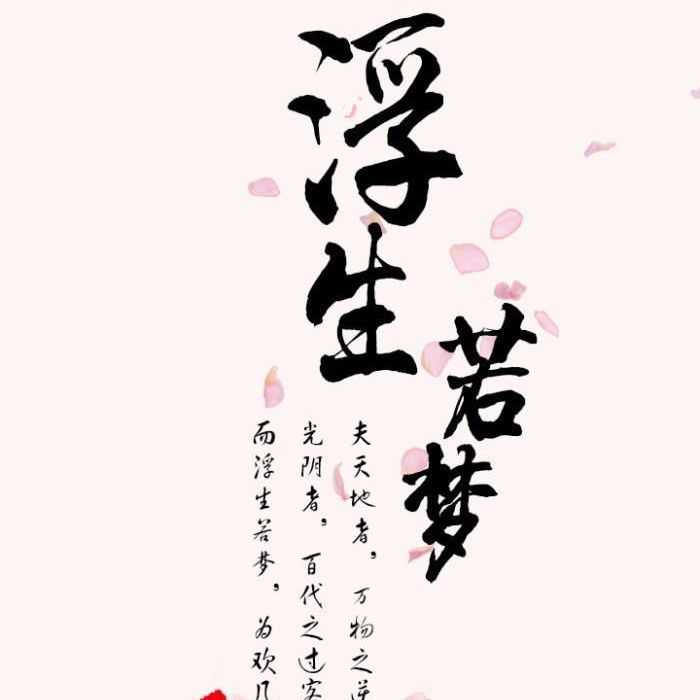 浮生
若梦
夫天地者，万物之
光阴者，百代之过
而浮生若梦，为欢几